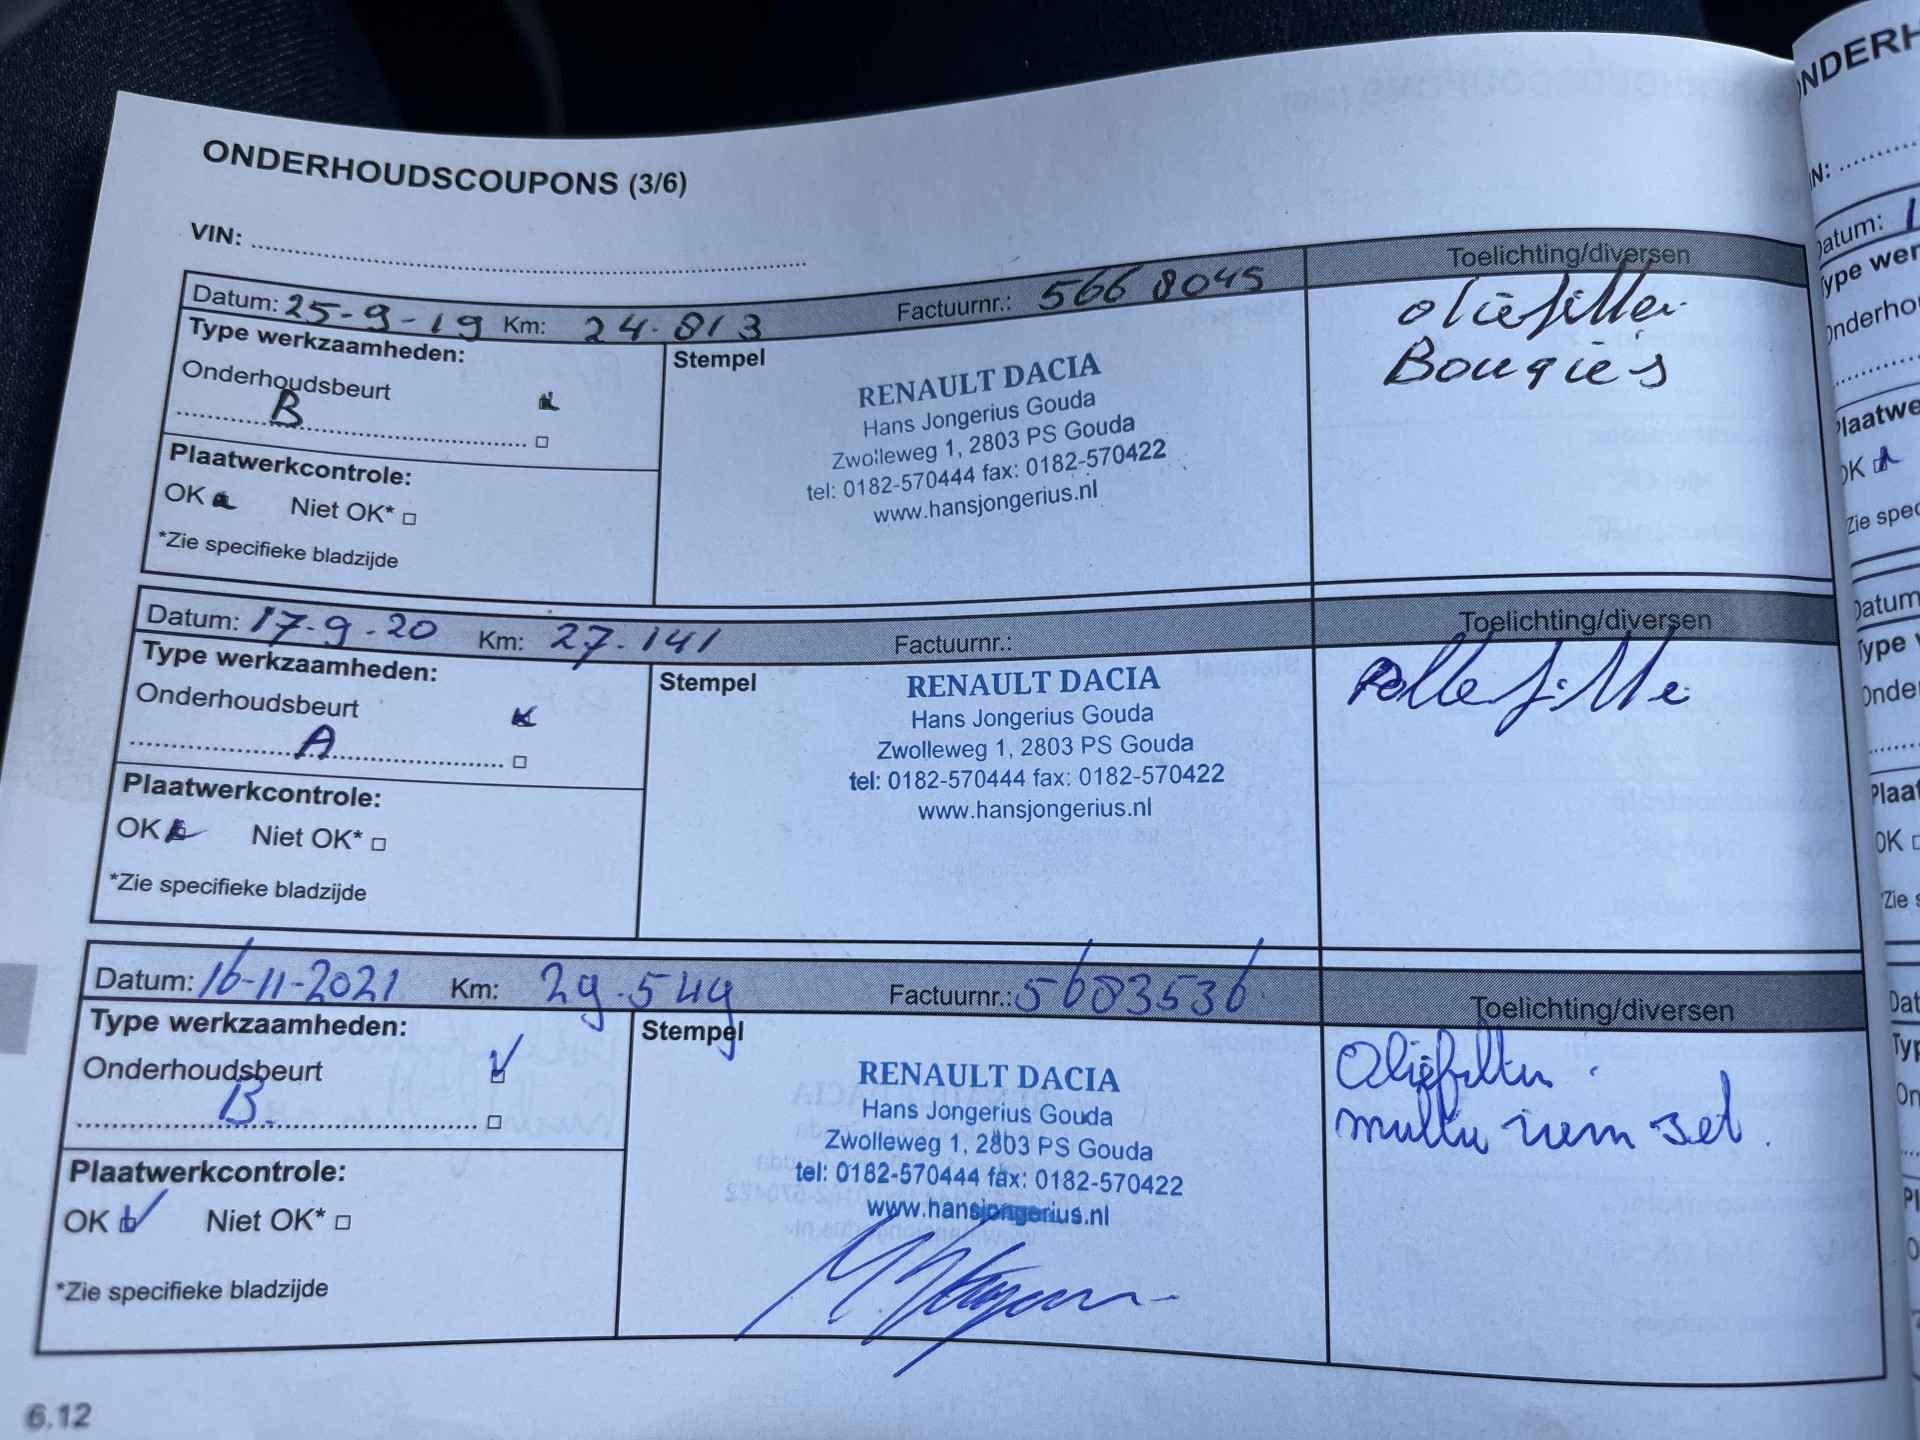 ONDERHOUDSCOUPONS (3/6)
VIN:
Datum: 25-9-19 Km: 24.813 Factuurnr.: 5668045 Toelichting/diversen
Type werkzaamheden:
Onderhoudsbeurt
B
Plaatwerkcontrole:
OK Niet OK*
*Zie specifieke bladzijde
Stempel
RENAULT DACIA
Hans Jongerius Gouda
Zwolleweg 1, 2803 PS Gouda
tel: 0182-570444 fax: 0182-570422
www.hansjongerius.nl
oliefilter
Bougie's
Datum: 17-9-20 Km: 27.141 Factuurnr.: Toelichting/diversen
Type werkzaamheden:
Onderhoudsbeurt
A
Plaatwerkcontrole:
OK Niet OK*
*Zie specifieke bladzijde
Stempel
RENAULT DACIA
Hans Jongerius Gouda
Zwolleweg 1, 2803 PS Gouda
tel: 0182-570444 fax: 0182-570422
www.hansjongerius.nl
Datum: 16-11-2021 Km: 29.549 Factuurnr.: 5683536 Toelichting/diversen
Type werkzaamheden:
Onderhoudsbeurt
B.
Plaatwerkcontrole:
OK Niet OK*
*Zie specifieke bladzijde
Stempel
RENAULT DACIA
Hans Jongerius Gouda
Zwolleweg 1, 2803 PS Gouda
tel: 0182-570444 fax: 0182-570422
www.hansjongerius.nl
Oliefilter.
multi riem set.
6.12